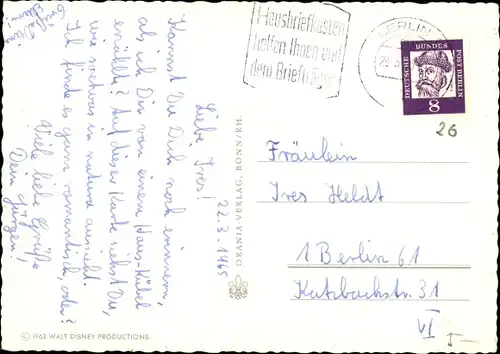 Grüße!
Hausbriefkästen
helfen Ihnen und
dem Briefträger
BERLIN
DEUTSCHE BUNDESPOST BERLIN
8
26
22.3.1965
Liebe Ires!
Kannst Du Dich noch erinnern,
als ich Dir von einem Haus-Kübel
erzählte? Auf dieser Karte siehst Du,
wie so etwas in natura aussieht.
Ich finde es ganz romantisch, oder?
Viele liebe Grüße,
Dein Jürgen!
ORANIA-VERLAG, BONN/RH.
Fräulein
Ires Heldt
1 Berlin 61
Katzbachstr. 31
VI
© 1962 WALT DISNEY PRODUCTIONS